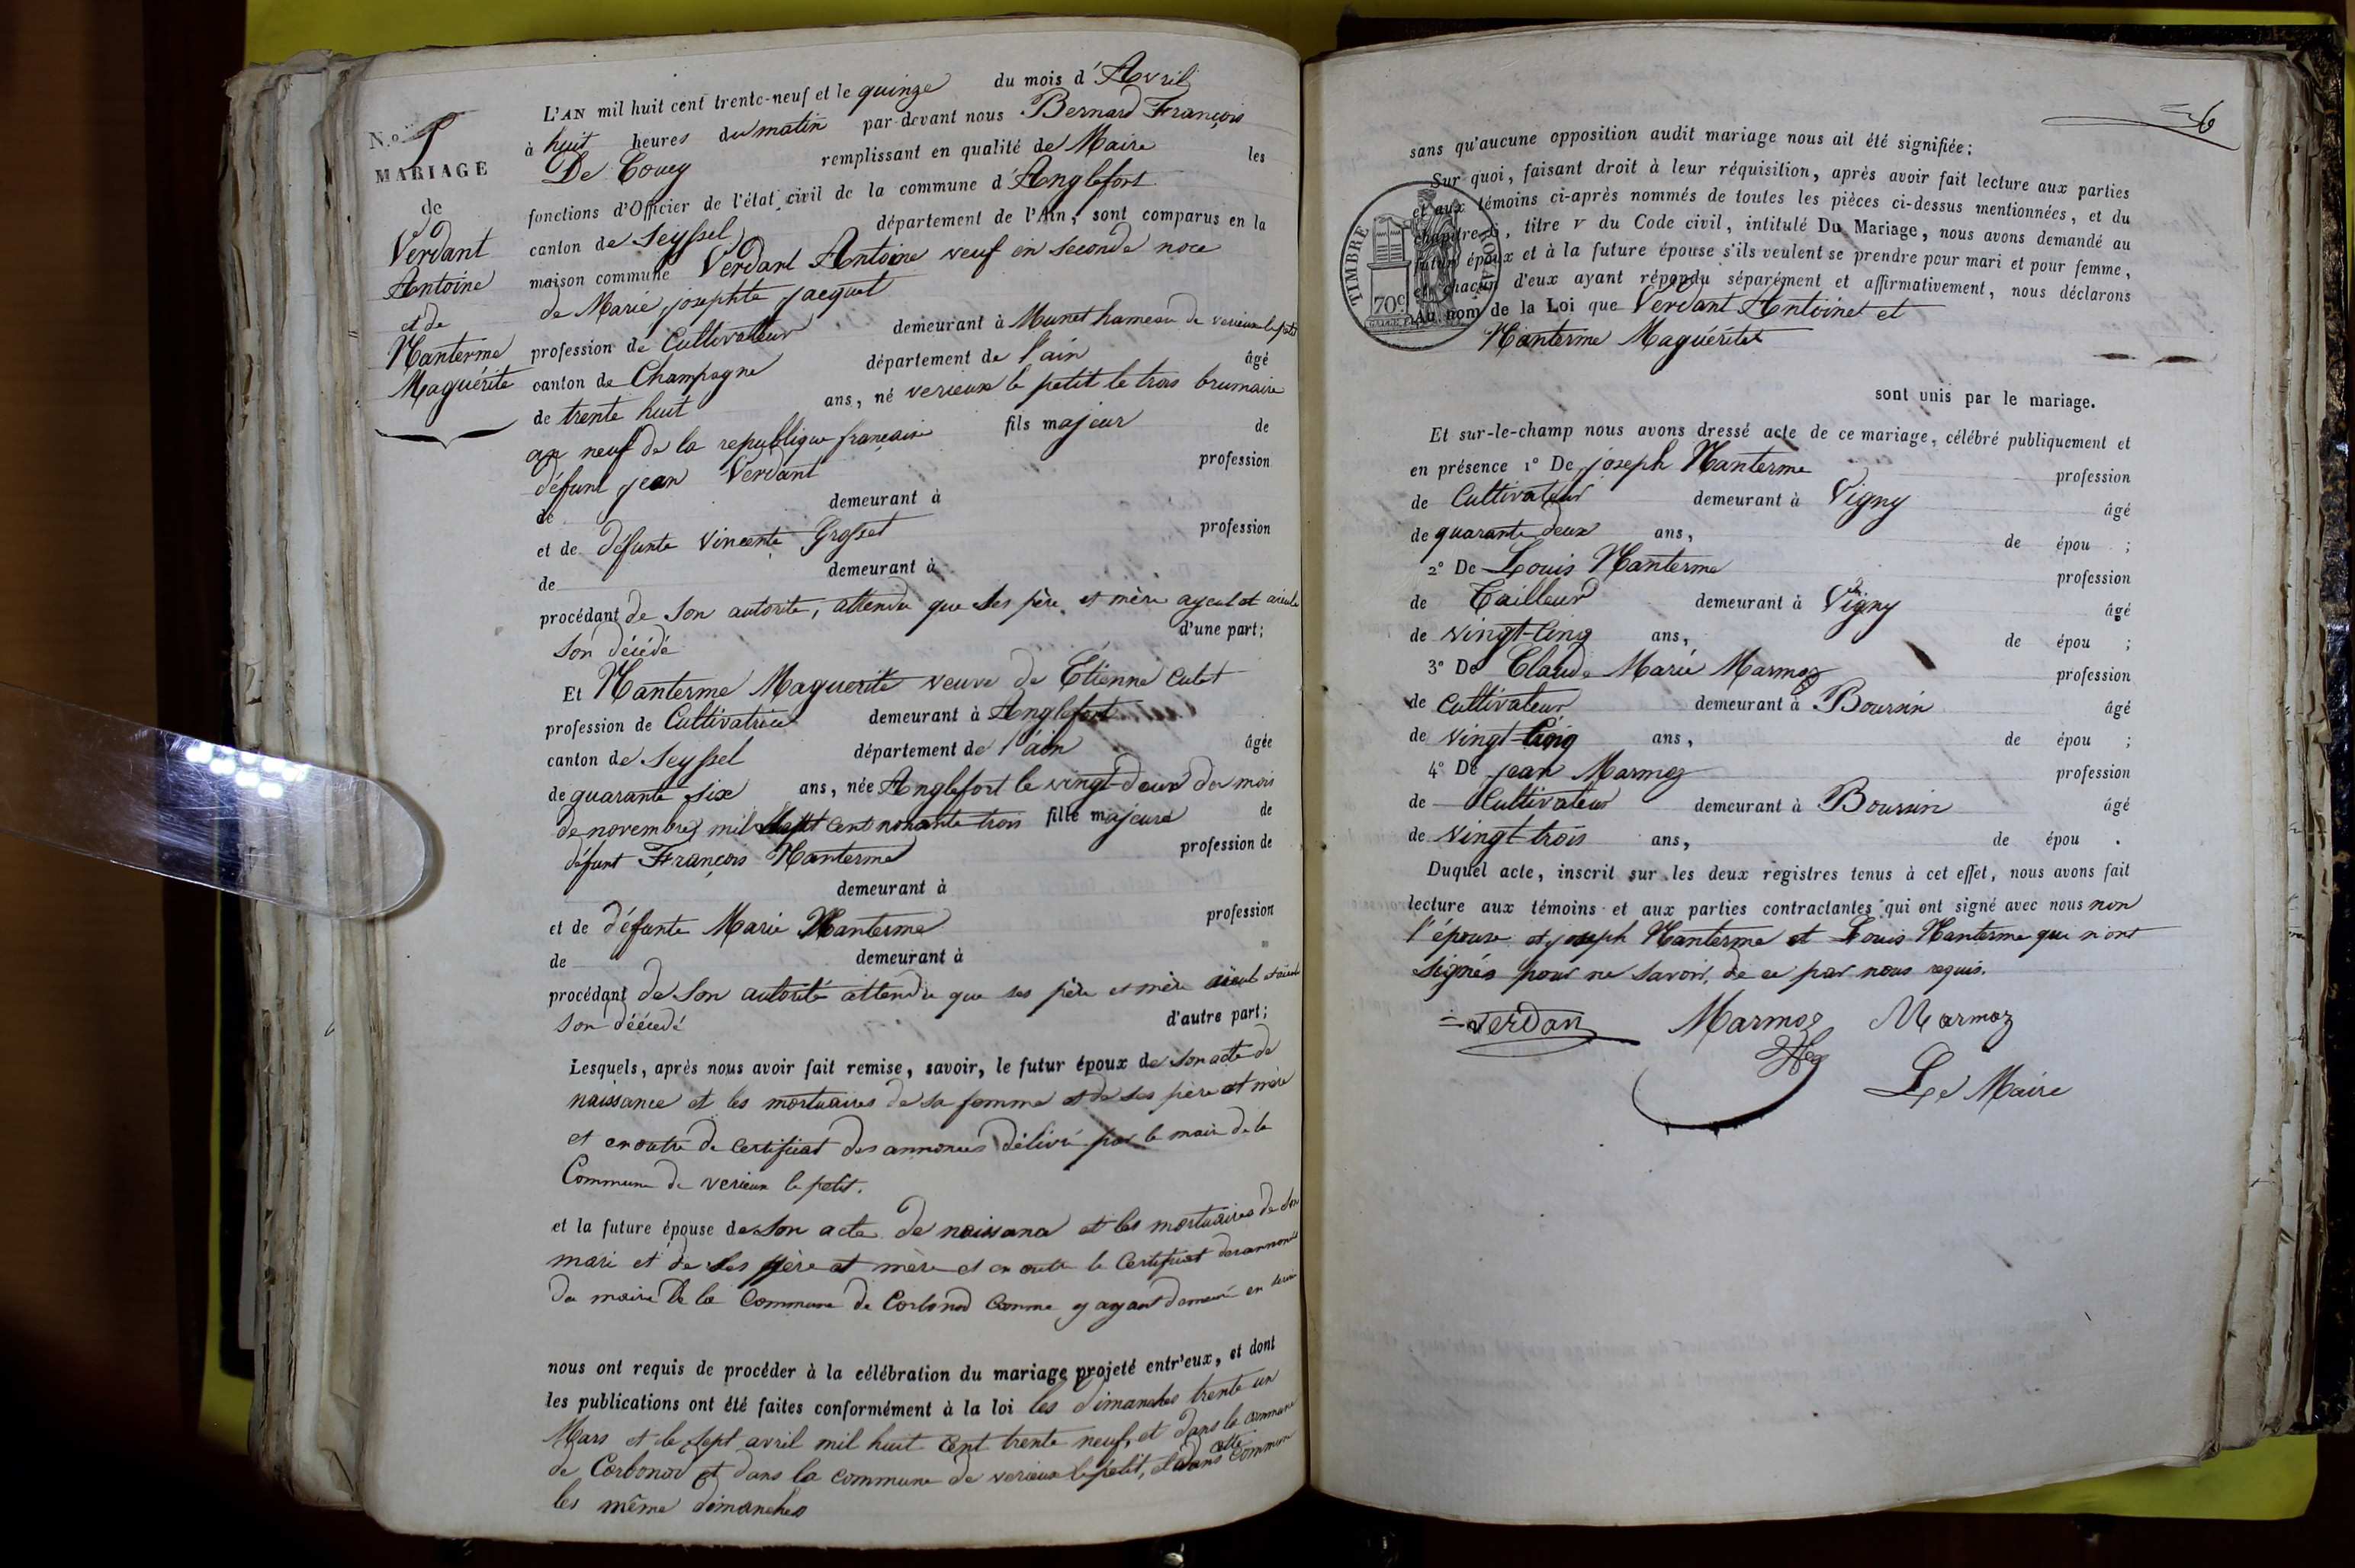 L'AN mil huit cent trente-neuf et le quinze du mois d'Avril
N.o
MARIAGE
de
Verdant
Antoine
et de
Nanterme
Maguérite
à huit heures du matin par-devant nous Bernard François
De Coucy remplissant en qualité de Maire les
fonctions d'Officier de l'état civil de la commune d'Anglefort
canton de Seyssel département de l'Ain, sont comparus en la
maison commune Verdant Antoine veuf en seconde noce
de Marie josephte jacquet
profession de Cultivateur demeurant à Munet hameau de verieux le petit
canton de Champagne département de l'ain âgé
de trente huit ans, né verieux le petit le trois brumaire
an neuf de la republique française fils majeur de
défunt jean Verdant profession
de demeurant à
et de défunte Vincente Grosset profession
de demeurant à
procédant de son autorité, attendu que ses père et mère ayeul et aieule
son décédé d'une part;
Et Nanterme Maguerite veuve de Étienne Culet
profession de Cultivatrice demeurant à Anglefort
canton de Seyssel département de l'ain âgée
de quarante six ans, née Anglefort le vingt-deux du mois
de novembre mil sept cent nonante trois fille majeure de
défunt François Nanterme profession de
demeurant à
et de défunte Marie Nanterme profession
de demeurant à
procédant de son autorité attendu que ses père et mère aïeul et aïeule
son décédé d'autre part;
Lesquels, après nous avoir fait remise, savoir, le futur époux de son acte de
naissance et les mortuaires de sa femme et de ses père et mère
et en outre de certificat des annonces délivré par le maire de la
Commune de verieux le petit.
et la future épouse de son acte de naissance et les mortuaires de son
mari et de ses père et mère et en outre le Certificat des annonces
du maire de la Commune de Corbonod comme y ayant demeuré en
nous ont requis de procéder à la célébration du mariage projeté entr'eux, et dont
les publications ont été faites conformément à la loi les dimanches trente un
Mars et le sept avril mil huit cent trente neuf, et dans la commune
de Corbonod et dans la commune de verieux le petit, et dans cette commune
les même dimanches
36
sans qu'aucune opposition audit mariage nous ait été signifiée;
Sur quoi, faisant droit à leur réquisition, après avoir fait lecture aux parties
et aux témoins ci-après nommés de toutes les pièces ci-dessus mentionnées, et du
chapitre 6, titre v du Code civil, intitulé Du Mariage, nous avons demandé au
futur époux et à la future épouse s'ils veulent se prendre pour mari et pour femme,
et chacun d'eux ayant répondu séparément et affirmativement, nous déclarons
Au nom de la Loi que Verdant Antoine et
Nanterme Maguérite
TIMBRE ROYAL
70c
sont unis par le mariage.
Et sur-le-champ nous avons dressé acte de ce mariage, célébré publiquement et
en présence 1° De joseph Nanterme profession
de Cultivateur demeurant à Vigny âgé
de quarante deux ans, de épou ;
2° De Louis Nanterme profession
de Tailleur demeurant à Vigny âgé
de vingt-cinq ans, de épou ;
3° De Claude Marie Marmoz profession
de Cultivateur demeurant à Boursin âgé
de vingt-cinq ans, de épou ;
4° De jean Marmoz profession
de Cultivateur demeurant à Boursin âgé
de vingt-trois ans, de épou .
Duquel acte, inscrit sur les deux registres tenus à cet effet, nous avons fait
lecture aux témoins et aux parties contractantes qui ont signé avec nous non
l'épouse et joseph Nanterme et Louis Nanterme qui n'ont
signés pour ne savoir, de ce par nous requis.
Verdan Marmoz Marmoz
Le Maire